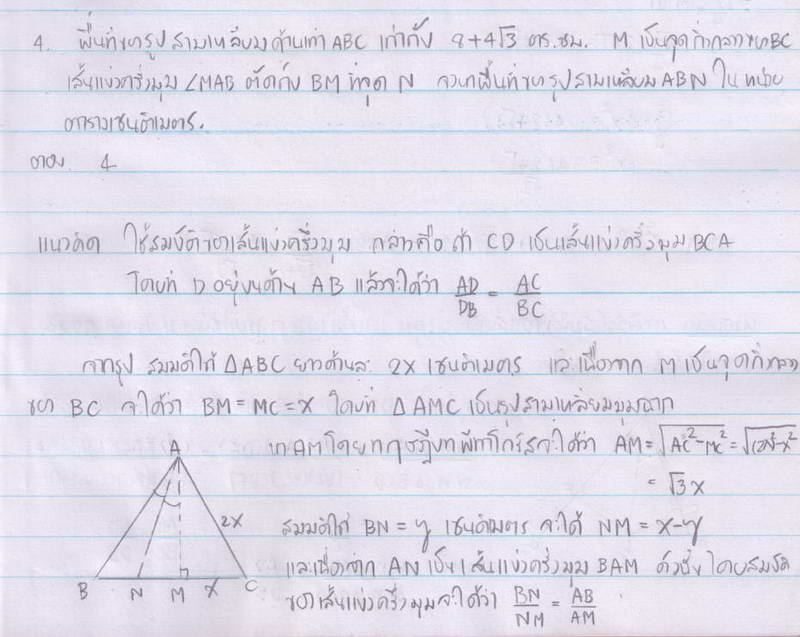 4. พื้นที่ของรูปสามเหลี่ยมด้านเท่า ABC เท่ากับ 8+4√3 ตร.ซม. M เป็นจุดกึ่งกลางของ BC
เส้นแบ่งครึ่งมุม ∠MAB ตัดกับ BM ที่จุด N จงหาพื้นที่ของรูปสามเหลี่ยม ABN ในหน่วย
ตารางเซนติเมตร.
ตอบ 4
แนวคิด ใช้สมบัติของเส้นแบ่งครึ่งมุม กล่าวคือ ถ้า CD เป็นเส้นแบ่งครึ่งมุม BCA
โดยที่ D อยู่บนด้าน AB แล้วจะได้ว่า AD/DB = AC/BC
จากรูป สมมติให้ △ABC ยาวด้านละ 2x เซนติเมตร และเนื่องจาก M เป็นจุดกึ่งกลาง
ของ BC จะได้ว่า BM = MC = x โดยที่ △AMC เป็นรูปสามเหลี่ยมมุมฉาก
หา AM โดยทฤษฎีบทพีทาโกรัสจะได้ว่า AM = √(AC²-MC²) = √((2x)²-x²)
= √3 x
A
2x
B N M x C
สมมติให้ BN = y เซนติเมตร จะได้ NM = x-y
และเนื่องจาก AN เป็นเส้นแบ่งครึ่งมุม BAM ดังนั้น โดยสมบัติ
ของเส้นแบ่งครึ่งมุมจะได้ว่า BN/NM = AB/AM